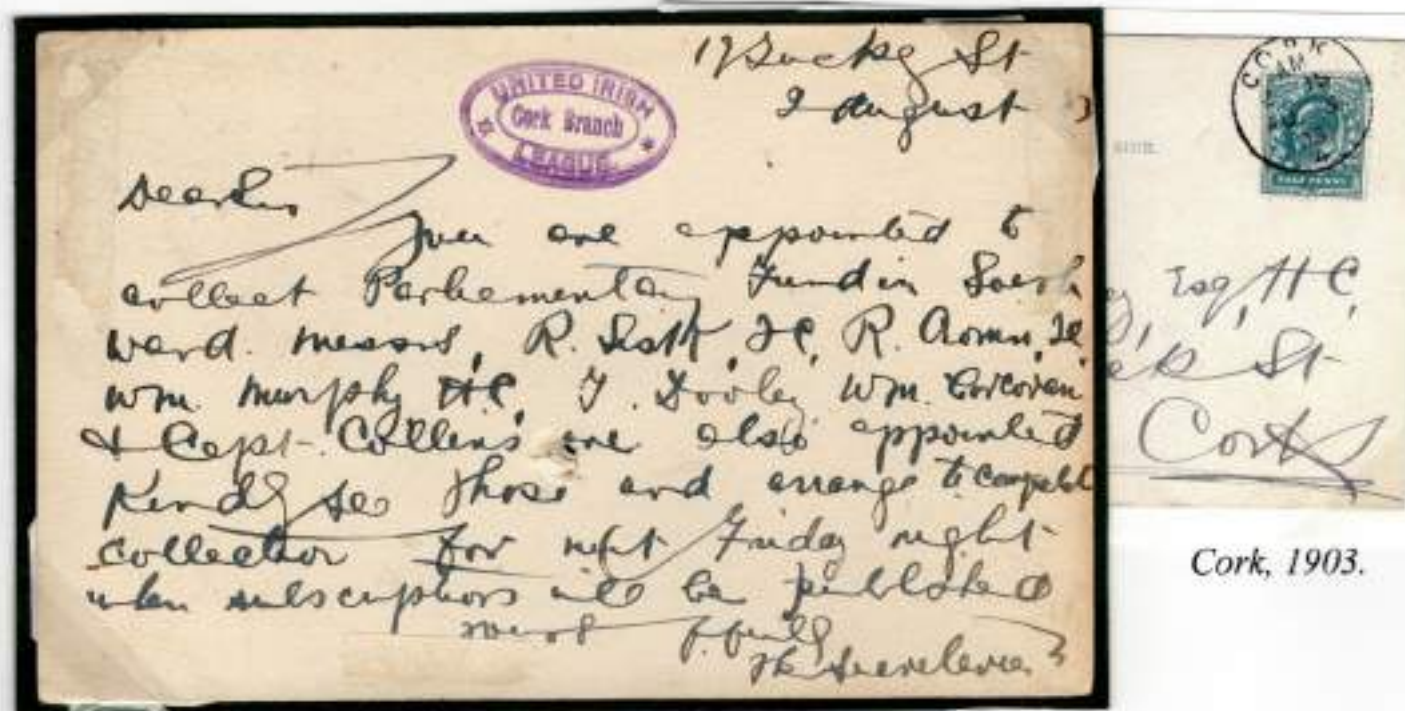 St
2 August
UNITED IRISH
Cork Branch
LEAGUE
Dear Sir
You are appointed to
collect Parliamentary Fund in South
ward. Messrs, R. R.
Wm. Murphy H.C, T. Dooley Wm. Corcoran
& Capt. Collins are also appointed
Kindly see those and arrange to complete
collection for next Friday night
when subscriptions will be published
yours f.fully
CORK
AM
HALF PENNY
Esq, H.C,
St
Cork
Cork, 1903.